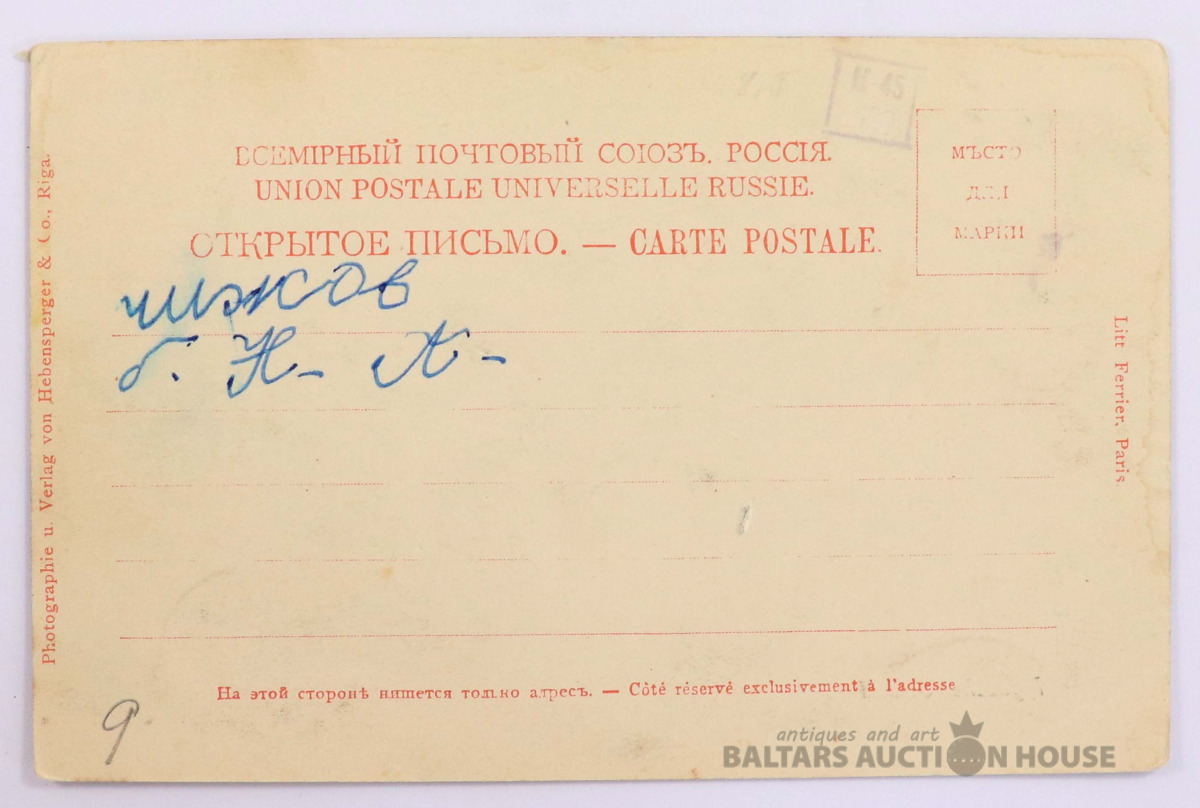 ВСЕМІРНЫЙ ПОЧТОВЫЙ СОЮЗЪ. РОССІЯ.
UNION POSTALE UNIVERSELLE RUSSIE.
ОТКРЫТОЕ ПИСЬМО. — CARTE POSTALE.
МѢСТО
ДЛЯ
МАРКИ
чижов
б. Н- А-
Photographie u. Verlag von Hebensperger & Co., Riga.
Litt Ferrier, Paris.
На этой сторонѣ пишется только адресъ. — Côté réservé exclusivement à l'adresse
9
antiques and art
BALTARS AUCTION HOUSE